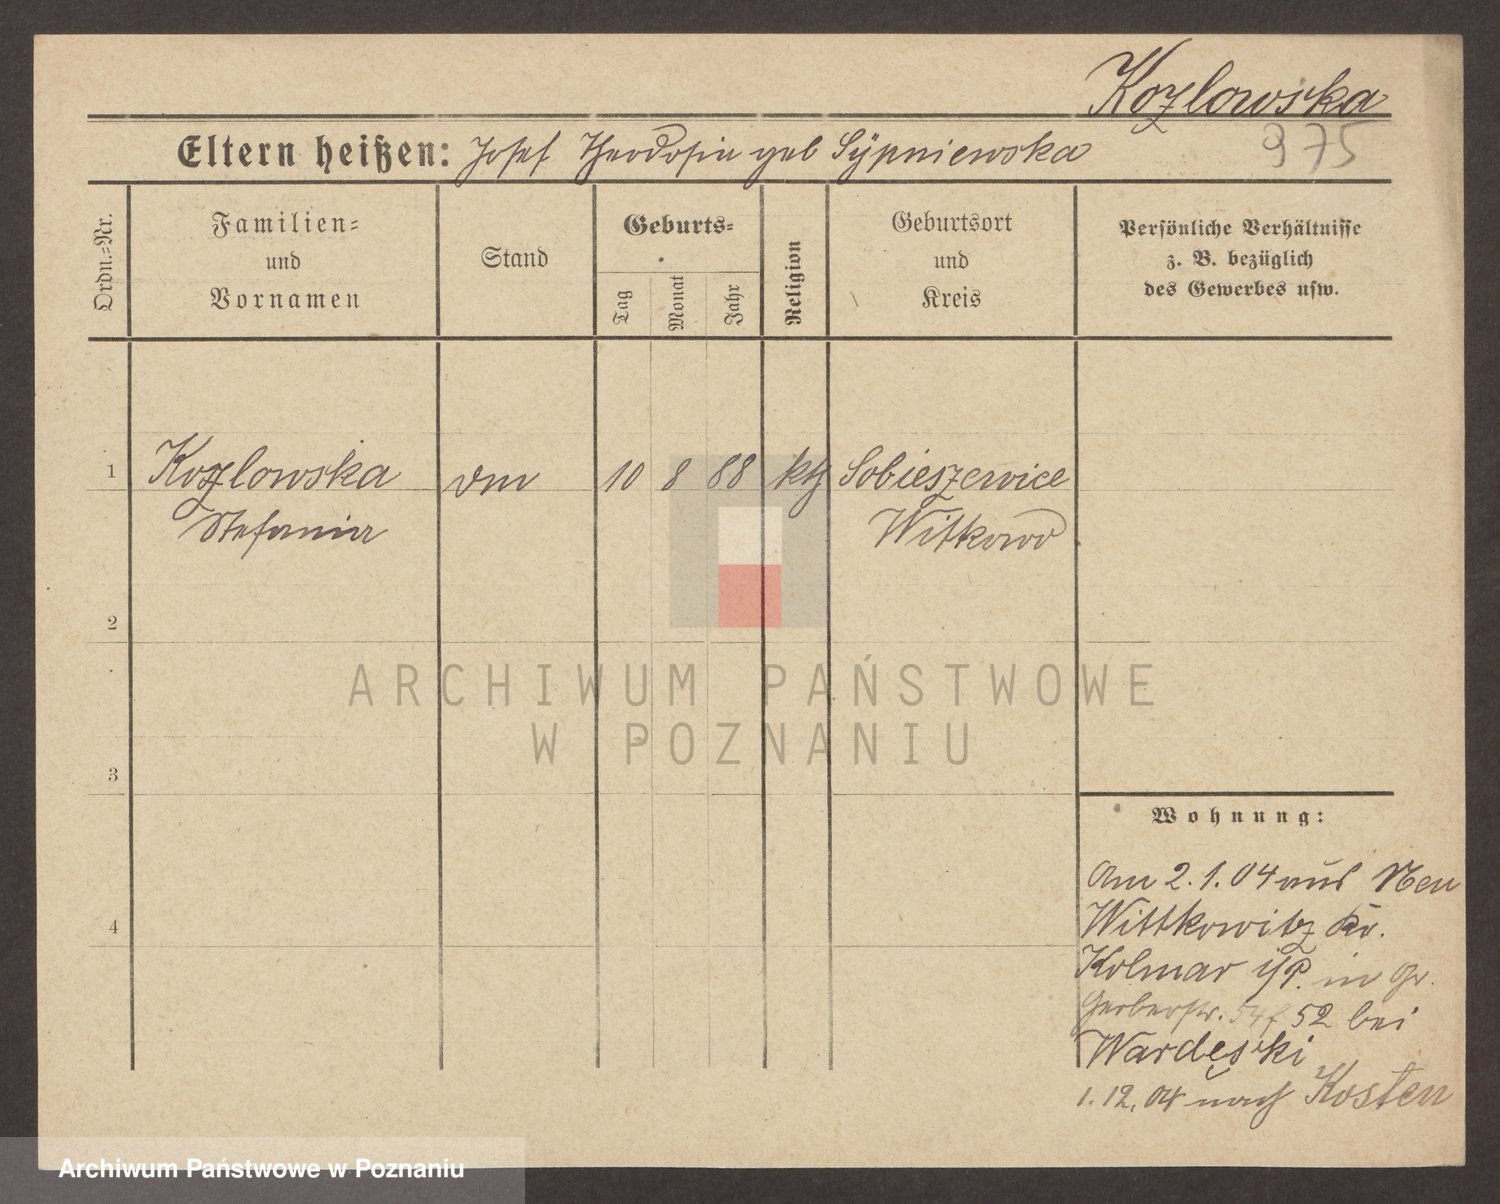 Kozlowska
975
Eltern heißen: Josef Theodosia geb Sÿpniewska
Ordn.-Nr.
Familien- und Vornamen
Stand
Geburts-
Tag
Monat
Jahr
Religion
Geburtsort und Kreis
Persönliche Verhältnisse z. B. bezüglich des Gewerbes usw.
1 Kozlowska 10 8 88 kth Sobieszewice
Stefania Witkowo
2
3
4
ARCHIWUM PAŃSTWOWE
W POZNANIU
Wohnung:
Am 2.1.04 aus Neu
Wittkowitz Kr.
Kolmar i/P. in Gr.
Gerberstr. 52 bei
Wardęski
1.12.04 nach Kosten
Archiwum Państwowe w Poznaniu